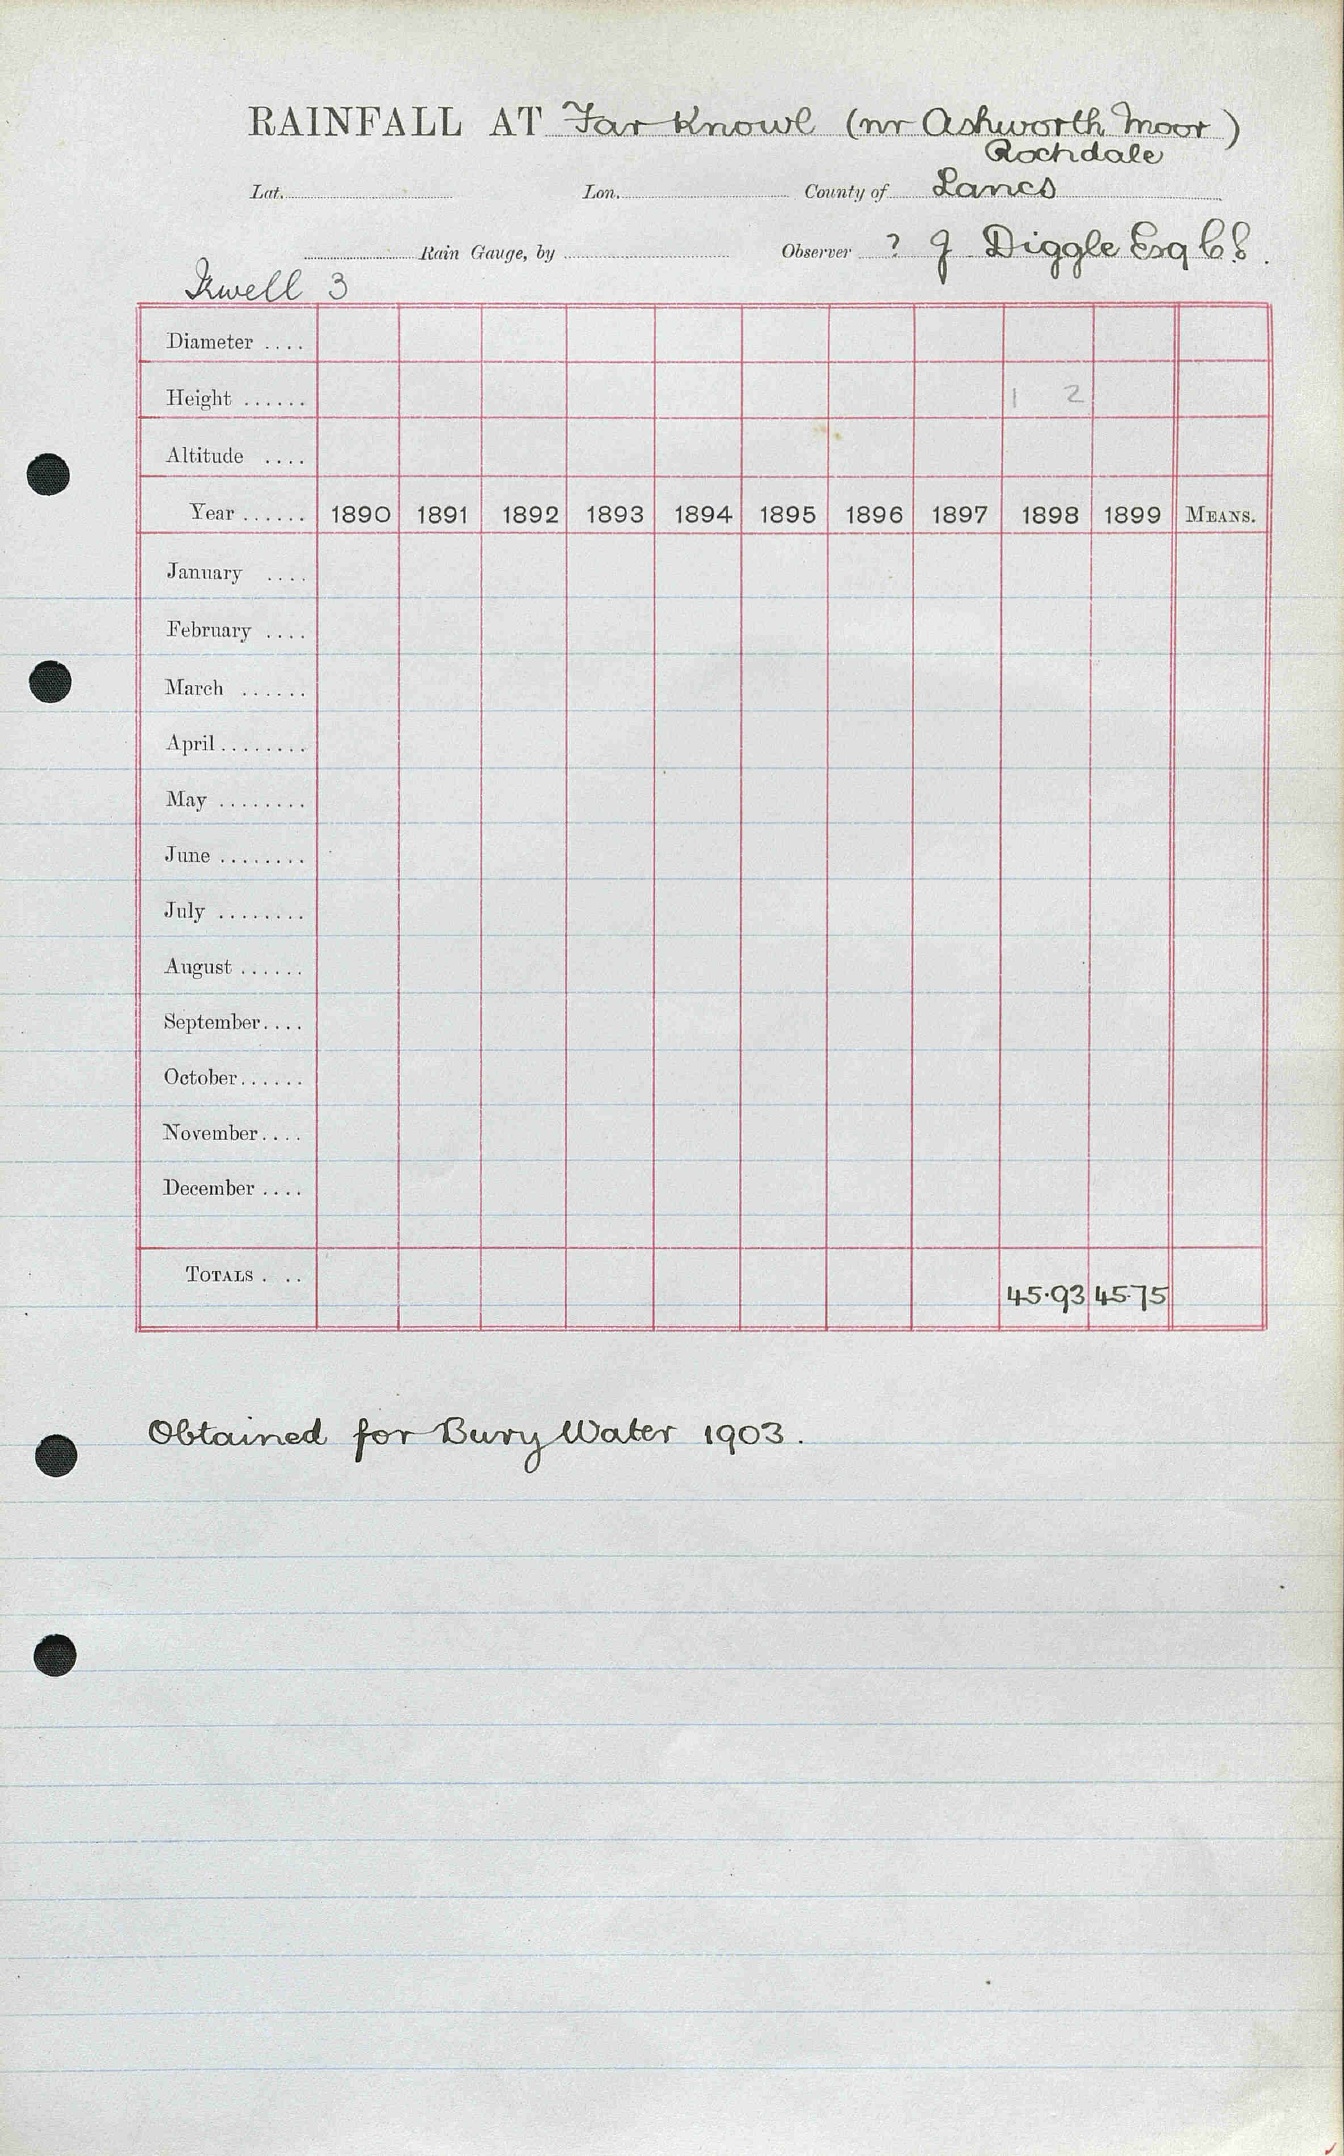 RAINFALL AT Far Knowl (nr Ashworth Moor)
Rochdale
Lat. Lon. County of Lancs
Rain Gauge, by Observer ? J Diggle Esq C.E.
Irwell 3
Diameter ....
Height ...... 1 2
Altitude ....
Year ...... 1890 1891 1892 1893 1894 1895 1896 1897 1898 1899 MEANS.
January ....
February ....
March ......
April ........
May ........
June ........
July ........
August ......
September....
October......
November....
December ....
TOTALS . .. 45.93 45.75
Obtained for Bury Water 1903.